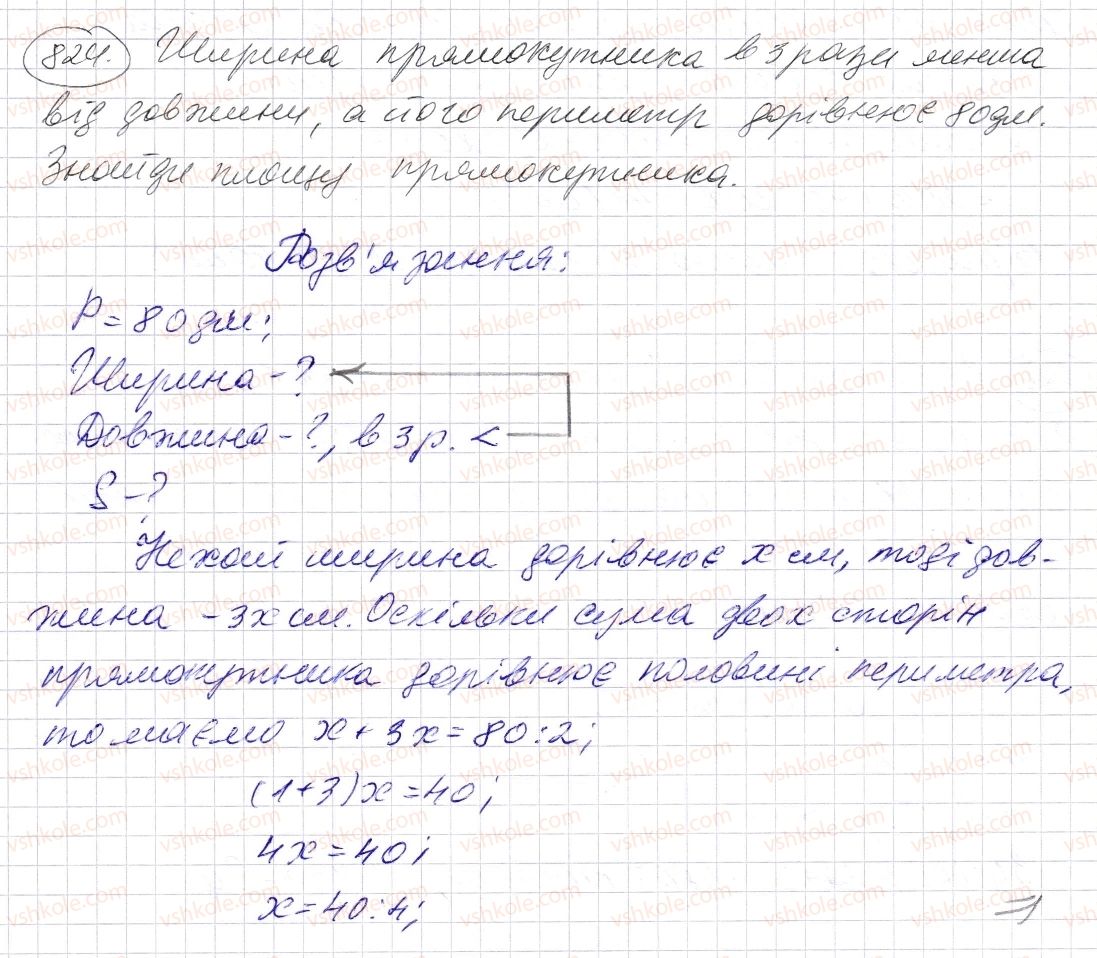 824. Ширина прямокутника в 3 рази менша
від довжини, а його периметр дорівнює 80дм.
Знайди площу прямокутника.
Розв'язання:
P = 80 дм;
Ширина - ?
Довжина - ?, в 3 р. <
S - ?
Нехай ширина дорівнює x см, тоді дов-
жина - 3x см. Оскільки сума двох сторін
прямокутника дорівнює половині периметра,
то маємо x + 3x = 80 : 2;
(1+3)x = 40;
4x = 40;
x = 40 : 4;
vshkole.com